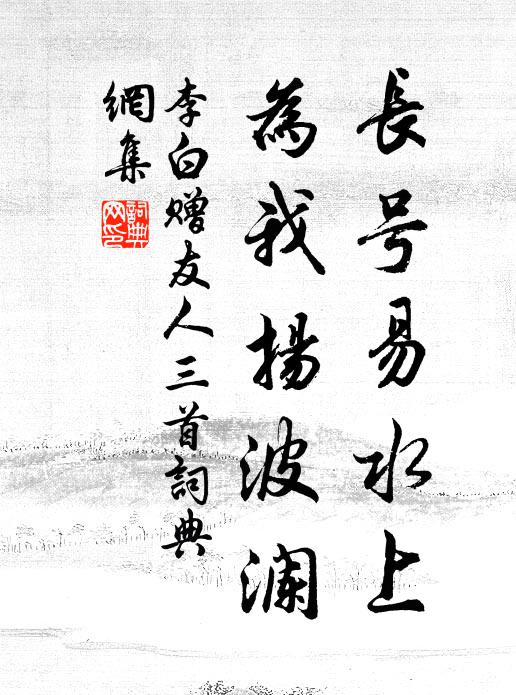 長号易水上
為我揚波瀾
李白赠友人三首詞典
網集
詞典網印